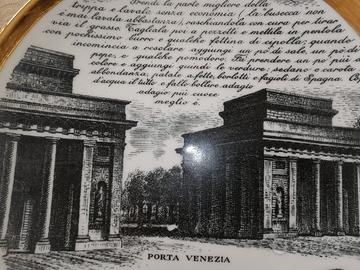 Prendi la parte migliore della
trippa e lavala senza economia, (la busecca non
è mai lavata abbastanza), raschiandola con cura per tirar
via el grasso. Tagliala poi a pezzetti e mettila in pentola
con pochissimo burro e qualche fettina di cipolla; quando
incomincia a rosolare aggiungi un pò di sale, un pò di
pepe, e qualche pomodoro. Fa prendere un pò più di
colore e aggiungi quindi le verdure, sedano e carote
abbondanza; patate a fette, borlotti e fagioli di Spagna.
d'acqua il tutto e falle bollire adagio
adagio più cuoce
meglio è.
PORTA VENEZIA